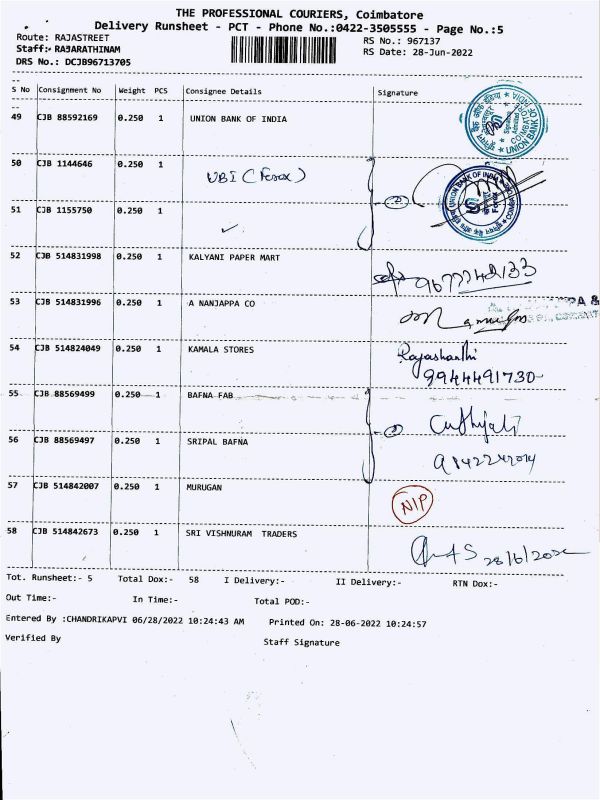 THE PROFESSIONAL COURIERS, Coimbatore
Delivery Runsheet - PCT - Phone No.:0422-3505555 - Page No.:5
Route: RAJASTREET
RS No.: 967137
Staff:- RAJARATHINAM
RS Date: 28-Jun-2022
DRS No.: DCJB96713705
S No Consignment No Weight PCS Consignee Details Signature
49 CJB 88592169 0.250 1 UNION BANK OF INDIA
UNION BANK OF INDIA
COIMBATORE
50 CJB 1144646 0.250 1 UBI (Forex)
UNION BANK OF INDIA
Forex
51 CJB 1155750 0.250 1 ✓
52 CJB 514831998 0.250 1 KALYANI PAPER MART
53 CJB 514831996 0.250 1 A NANJAPPA CO
54 CJB 514824049 0.250 1 KAMALA STORES
Rajashanthi
9944491730
55 CJB 88569499 0.250 1 BAFNA FAB
56 CJB 88569497 0.250 1 SRIPAL BAFNA
57 CJB 514842007 0.250 1 MURUGAN NIP
58 CJB 514842673 0.250 1 SRI VISHNURAM TRADERS
Tot. Runsheet:- 5 Total Dox:- 58 I Delivery:- II Delivery:- RTN Dox:-
Out Time:- In Time:- Total POD:-
Entered By :CHANDRIKAPVI 06/28/2022 10:24:43 AM Printed On: 28-06-2022 10:24:57
Verified By Staff Signature